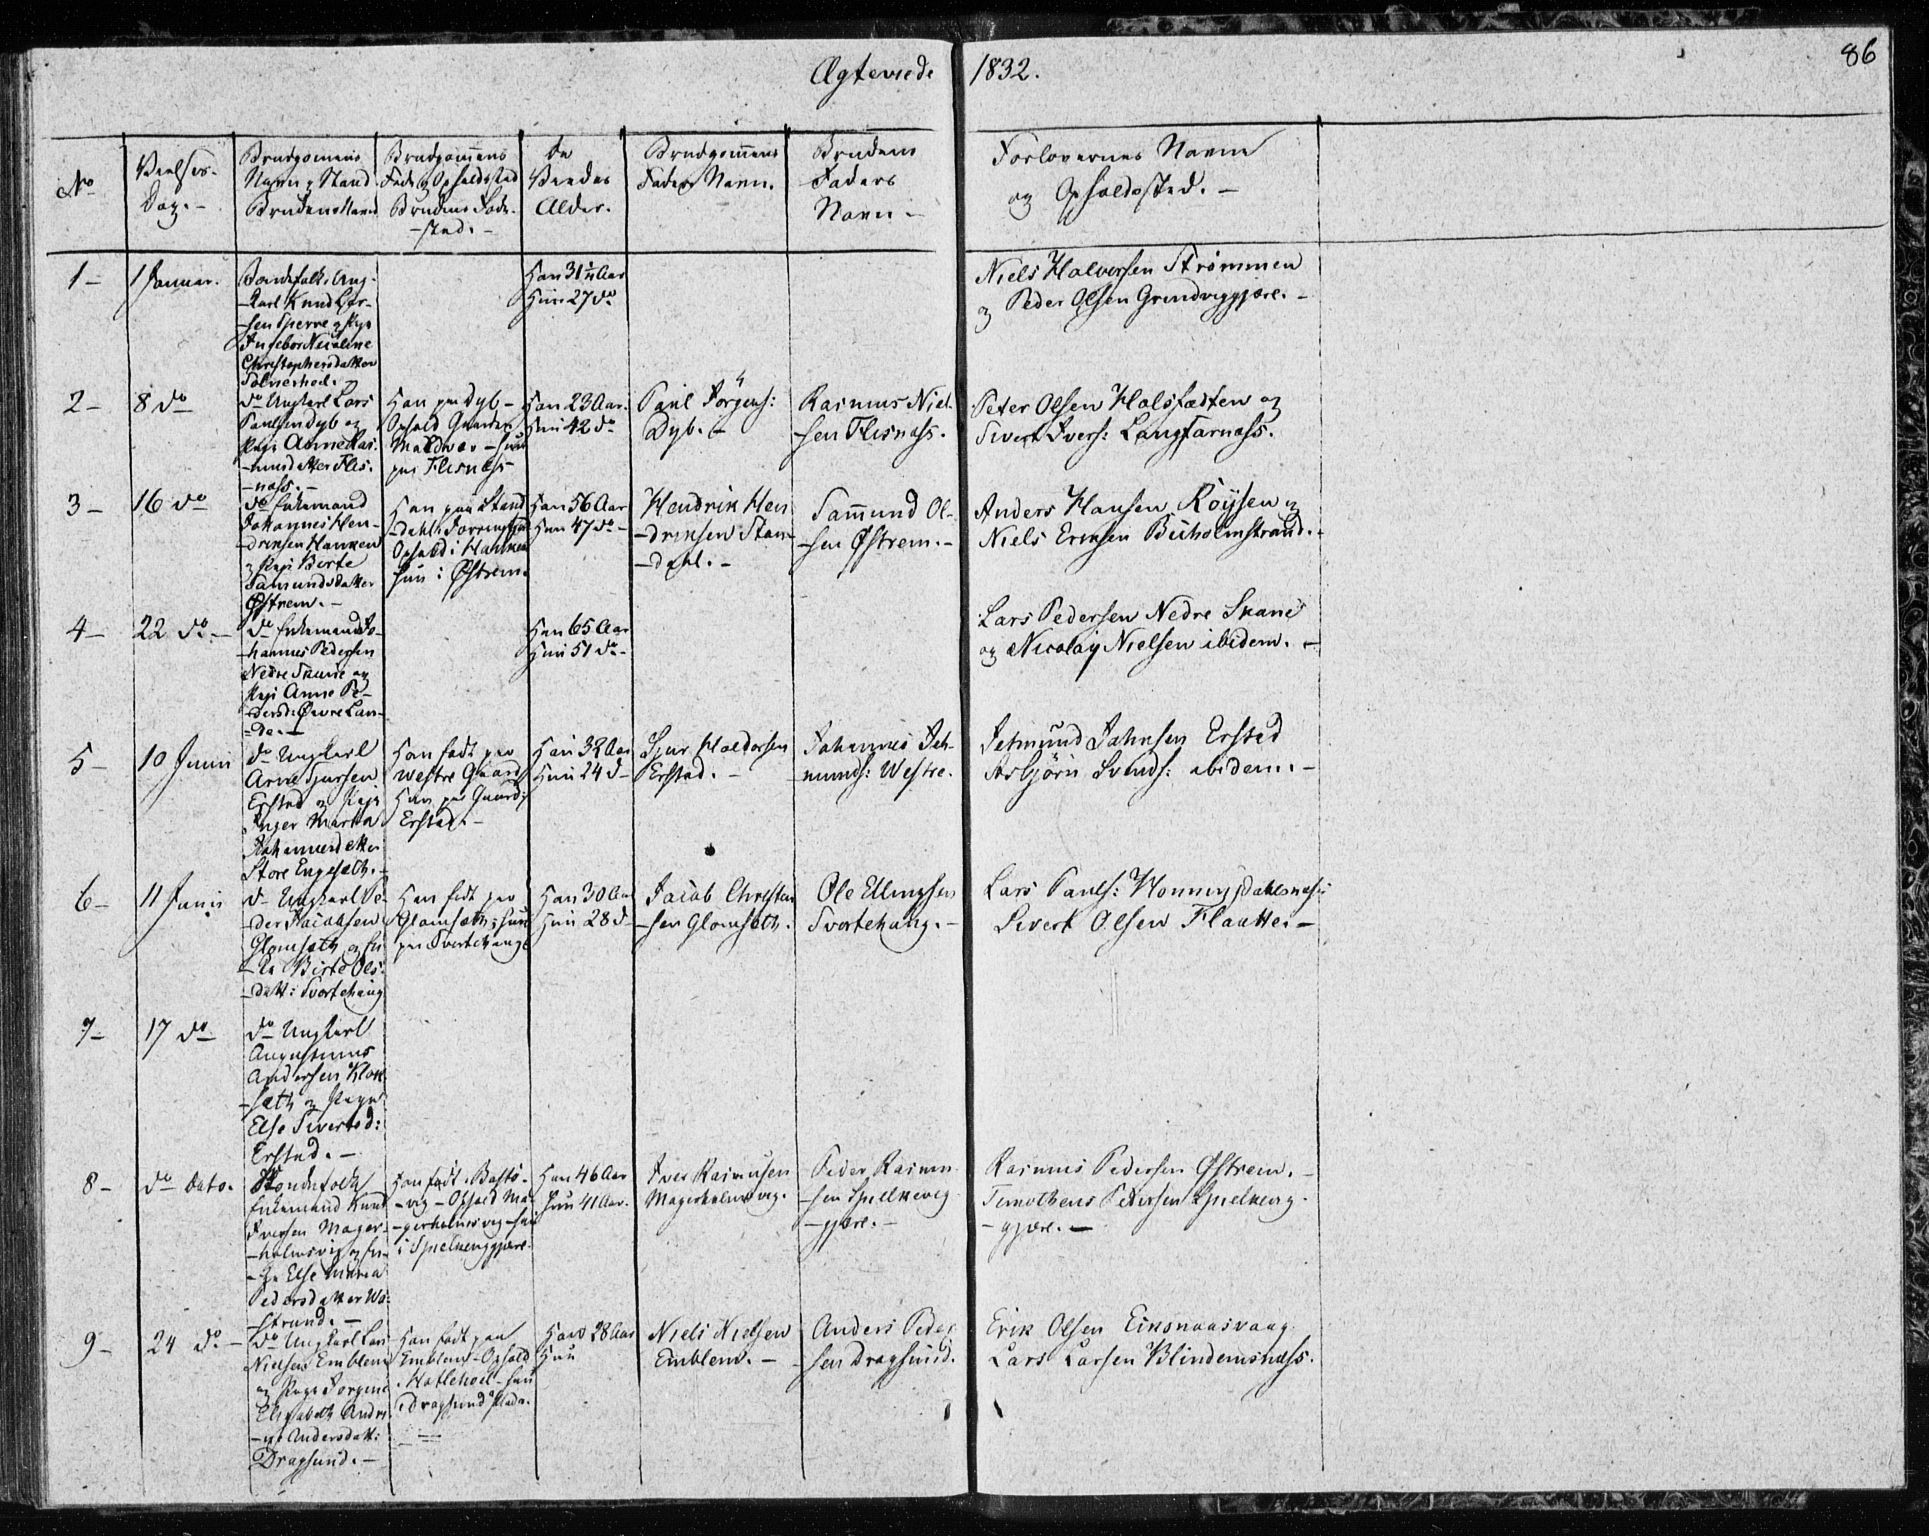 Ægteviede 1832.
86
No
Vielses-
Dag.-
Brudgomens
Navn, Stand
Brudens Navn
Brudgomens
Føde og Opholdssted
Brudens Føde-
-sted.-
De
Viedes
Alder.
Brudgomens
Faders Navn.
Brudens
Faders
Navn-
Forlovernes Navne
og Opholdssted.-
1-
1 Januar.
Bondefolk, Ung-
-karl Knud Lar-
-sen Sperre og Pige
Ingebor Nicoline
Christophersdatter
Han 31 Aar
Hun 27 do
Niels Halversen Strømmen
og Peder Olsen Grindviggjære.-
2-
8 do
do Ungkarl Lars
Paulsen Dyb og
Pige Anne Ras-
-musdatter Flis-
-næss.-
Han paa Dyb-
Ophold Gaarden
hun
paa Flisnæss
Han 23 Aar.
Hun 42 do
Paul Jörgens:
Dyb.-
Rasmus Niel-
-sen Flisnæss.
Peter Olsen Halsfadten og
Sivert Ivers: Langfarnæss.
3-
16 do
do Enkemand
Johannes Hen-
-driksen Hanken
og Pige Berte
Samundsdatter
Østrem.-
Han paa Stand-
-dahl i
Ophold i Hanken
hun i Østrem.
Han 56 Aar
Hun 47 do-
Hendrik Hen-
-driksen Stan-
-dahl.-
Samund Ol-
-sen Østrem.-
Anders Hansen Röysen og
Niels Eriksen Buholmstrand.-
4-
22 do.-
do Enkemand Jo-
-hannes Pedersen
Nedre Skaue og
Pige Anne Pe-
-dersd: Øvre Lan-
-de.-
Han 65 Aar
Hun 51 do-
Lars Pedersen Nedre Skaue
og Nicolay Nielsen ibidem.-
5-
10 Junii
do Ungkarl
Arne Sjursen
Erstad og Pige
Inger Marta
Johannesdatter
Store Engesæth.-
Han født paa
Westre Gaard
Hun paa Gaard
Erstad.-
Han 32 Aar
Hun 24 d-
Sjur Haldorsen
Erstad.-
Johannes Jet-
-munds: Westre.
Jetmund Johnsen Erstad
Asbjörn Svends: ibidem.-
6-
11 Junii
do Ungkarl Pe-
-der Jacobsen
Glomsæth og En-
-ke Birte Ols-
-datt: Svortehaug
Han født paa
Glomsæth, hun
paa Svortehaug
Han 30 Aar
Hun 28 d-
Jacob Christen-
-sen Glomsæth.
Ole Ellingsen
Svortehaug.-
Lars Pauls: Honningsdahlsnæs:
Sivert Olsen Flaatte.-
7-
17 do
do Ungkarl
Augustinus
Andersen Klok-
-sæth og Pige
Else Sivertsd:
Erstad.-
8-
do Dato.
Bondefolk
Enkemand Knud
Iversen Mager-
-holmsvig og En-
-ke Else Maria
Pedersdatter Wo-
-strand.-
Han født i Bastö-
-vig - Ophold Ma-
-gerholmsvig - hun
i Spielkeviggjære.
Han 46 Aar
Hun 41 Aar.
Iver Rasmusen
Magerholmsvig.
Peder Rasmu-
-sen Spielkevig-
-gjære.-
Rasmus Pedersen Østrem.-
Timotheus Petersen Spielkevig-
-gjære.-
9-
24 do.-
do Ungkarl Lars
Nielsen Emblem
og Pige Jorgine
Elisabeth Andri-
Andersdatt:
Dragsund.-
Han født paa
Emblem - Ophold
i Hatlehoel - hun
i Dragsund
Han 28 Aar
Hun
Niels Nielsen
Emblem.-
Anders Peder-
-sen Dragsund.
Erik Olsen Eiksnaasvaag.
Lars Larsen Blindemsnæss.